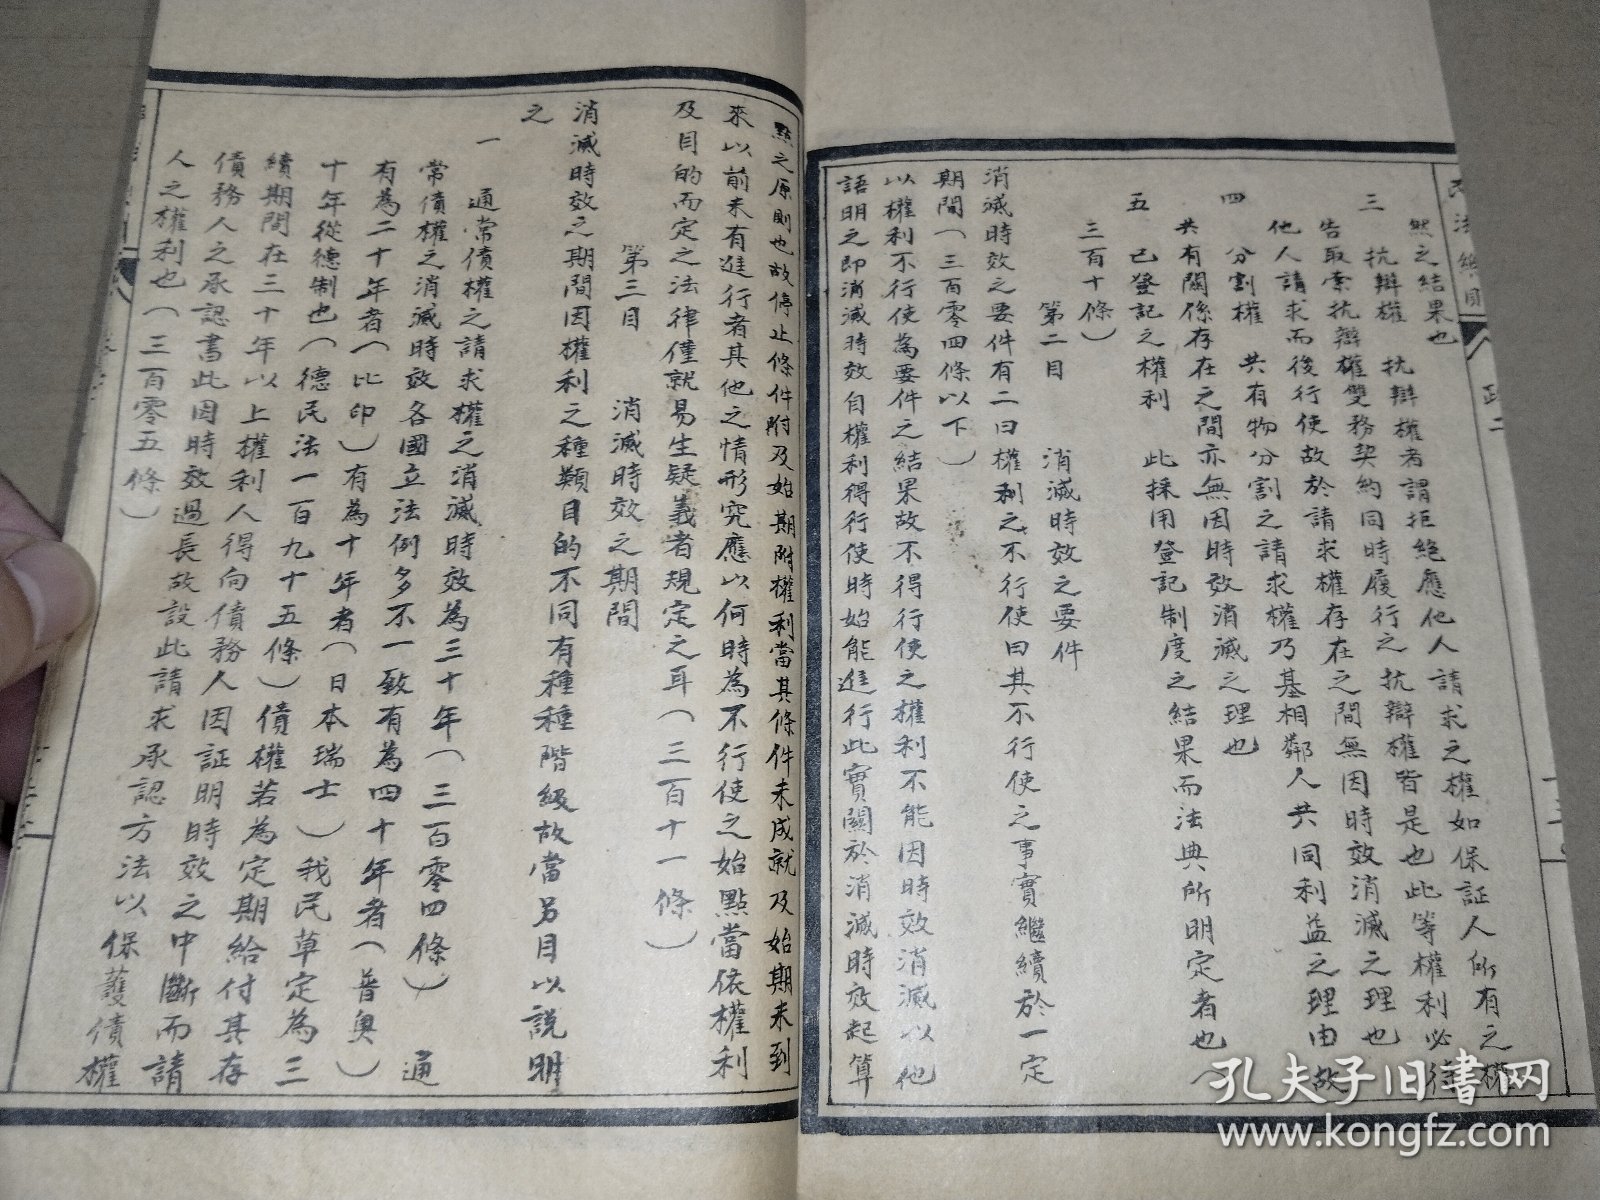 然之結果也
三 抗辯權 抗辯權者謂拒絶應他人請求之權如保証人所有之權
告取索抗辯權雙務契約同時履行之抗辯權皆是也此等權利必待
他人請求而後行使故於請求權存在之間無因時效消滅之理也
四 分割權 共有物分割之請求權乃基相鄰人共同利益之理由故
共有關係存在之間亦無因時效消滅之理也
五 已登記之權利 此採用登記制度之結果而法典所明定者也（
三百十條）
第二目 消滅時效之要件
消滅時效之要件有二曰權利之不行使曰其不行使之事實繼續於一定
期間（三百零四條以下）
以權利不行使為要件之結果故不得行使之權利不能因時效消滅以他
語明之即消滅時效自權利得行使時始能進行此實關於消滅時效起算
點之原則也故停止條件附及始期附權利當其條件未成就及始期未到
來以前未有進行者其他之情形究應以何時為不行使之始點當依權利
及目的而定之法律僅就易生疑義者規定之耳（三百十一條）
第三目 消滅時效之期間
消滅時效之期間因權利之種類目的不同有種種階級故當另目以說明
之
一 通常債權之請求權之消滅時效為三十年（三百零四條） 通
常債權之消滅時效各國立法例多不一致有為四十年者（普奧）
有為二十年者（比印）有為十年者（日本瑞士）我民草定為三
十年從德制也（德民法一百九十五條）債權若為定期給付其存
續期間在三十年以上權利人得向債務人因証明時效之中斷而請
債務人之承認書此因時效過長故設此請求承認方法以保護債權
人之權利也（三百零五條）
民法總則
孔夫子旧書网
www.kongfz.com